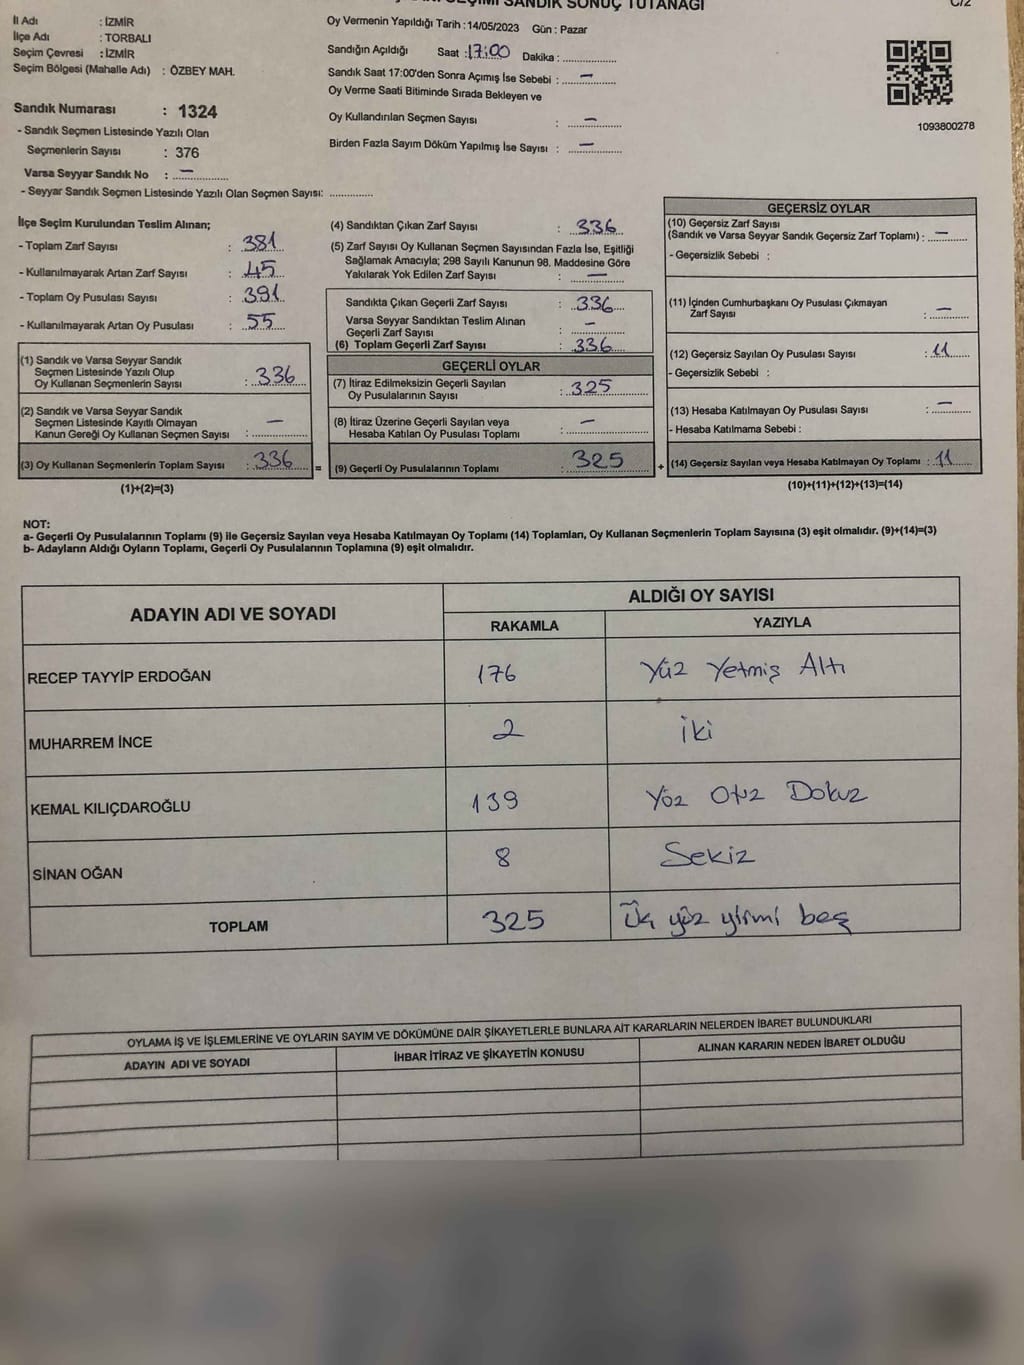 SEÇİMİ SANDIK SONUÇ TUTANAĞI
C/2
İl Adı : İZMİR
İlçe Adı : TORBALI
Seçim Çevresi : İZMİR
Seçim Bölgesi (Mahalle Adı) : ÖZBEY MAH.
Sandık Numarası : 1324
- Sandık Seçmen Listesinde Yazılı Olan
Seçmenlerin Sayısı : 376
Varsa Seyyar Sandık No : —
- Seyyar Sandık Seçmen Listesinde Yazılı Olan Seçmen Sayısı: ..............
Oy Vermenin Yapıldığı Tarih : 14/05/2023 Gün : Pazar
Sandığın Açıldığı Saat : 17:00 Dakika : ..............
Sandık Saat 17:00'den Sonra Açımış İse Sebebi : —
Oy Verme Saati Bitiminde Sırada Bekleyen ve
Oy Kullandırılan Seçmen Sayısı : —
Birden Fazla Sayım Döküm Yapılmış İse Sayısı : —
1093800278
İlçe Seçim Kurulundan Teslim Alınan;
- Toplam Zarf Sayısı : 381
- Kullanılmayarak Artan Zarf Sayısı : 45
- Toplam Oy Pusulası Sayısı : 391
- Kullanılmayarak Artan Oy Pusulası : 55
(1) Sandık ve Varsa Seyyar Sandık
Seçmen Listesinde Yazılı Olup
Oy Kullanan Seçmenlerin Sayısı : 336
(2) Sandık ve Varsa Seyyar Sandık
Seçmen Listesinde Kayıtlı Olmayan
Kanun Gereği Oy Kullanan Seçmen Sayısı : —
(3) Oy Kullanan Seçmenlerin Toplam Sayısı : 336
(1)+(2)=(3)
=
(4) Sandıktan Çıkan Zarf Sayısı : 336
(5) Zarf Sayısı Oy Kullanan Seçmen Sayısından Fazla İse, Eşitliği
Sağlamak Amacıyla; 298 Sayılı Kanunun 98. Maddesine Göre
Yakılarak Yok Edilen Zarf Sayısı : —
Sandıkta Çıkan Geçerli Zarf Sayısı : 336
Varsa Seyyar Sandıktan Teslim Alınan
Geçerli Zarf Sayısı : —
(6) Toplam Geçerli Zarf Sayısı : 336
GEÇERLİ OYLAR
(7) İtiraz Edilmeksizin Geçerli Sayılan
Oy Pusulalarının Sayısı : 325
(8) İtiraz Üzerine Geçerli Sayılan veya
Hesaba Katılan Oy Pusulası Toplamı : —
(9) Geçerli Oy Pusulalarının Toplamı : 325
+
GEÇERSİZ OYLAR
(10) Geçersiz Zarf Sayısı
(Sandık ve Varsa Seyyar Sandık Geçersiz Zarf Toplamı) : —
- Geçersizlik Sebebi :
(11) İçinden Cumhurbaşkanı Oy Pusulası Çıkmayan
Zarf Sayısı : —
(12) Geçersiz Sayılan Oy Pusulası Sayısı : 11
- Geçersizlik Sebebi :
(13) Hesaba Katılmayan Oy Pusulası Sayısı : —
- Hesaba Katılmama Sebebi :
(14) Geçersiz Sayılan veya Hesaba Katılmayan Oy Toplamı : 11
(10)+(11)+(12)+(13)=(14)
NOT:
a- Geçerli Oy Pusulalarının Toplamı (9) ile Geçersiz Sayılan veya Hesaba Katılmayan Oy Toplamı (14) Toplamları, Oy Kullanan Seçmenlerin Toplam Sayısına (3) eşit olmalıdır. (9)+(14)=(3)
b- Adayların Aldığı Oyların Toplamı, Geçerli Oy Pusulalarının Toplamına (9) eşit olmalıdır.
ADAYIN ADI VE SOYADI
ALDIĞI OY SAYISI
RAKAMLA YAZIYLA
RECEP TAYYİP ERDOĞAN 176 Yüz Yetmiş Altı
MUHARREM İNCE 2 İki
KEMAL KILIÇDAROĞLU 139 Yöz Otuz Dokuz
SİNAN OĞAN 8 Sekiz
TOPLAM 325 Üç yüz yirmi beş
OYLAMA İŞ VE İŞLEMLERİNE VE OYLARIN SAYIM VE DÖKÜMÜNE DAİR ŞİKAYETLERLE BUNLARA AİT KARARLARIN NELERDEN İBARET BULUNDUKLARI
ADAYIN ADI VE SOYADI İHBAR İTİRAZ VE ŞİKAYETİN KONUSU ALINAN KARARIN NEDEN İBARET OLDUĞU